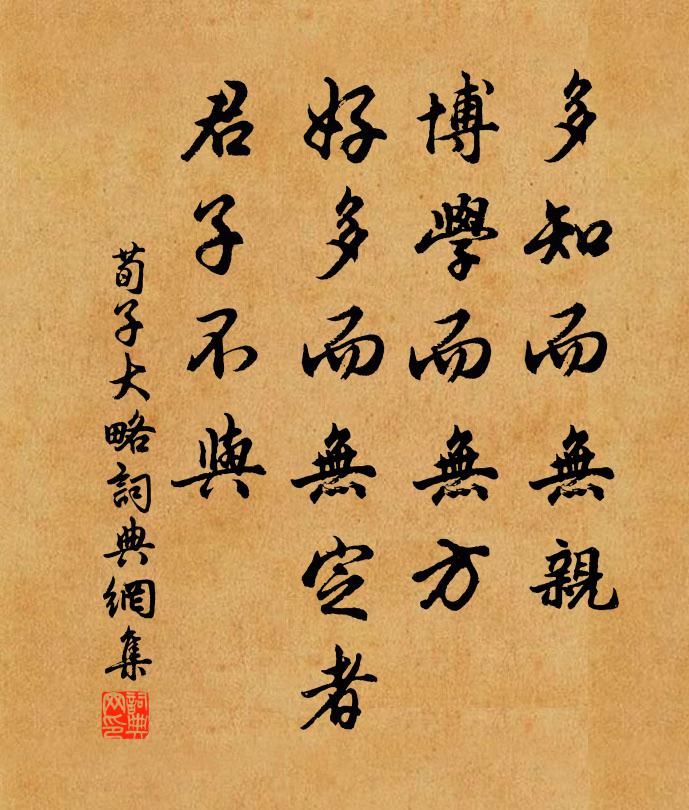 多知而無親
博學而無方
好多而無定者
君子不與
荀子大略詞典網集
詞典網印